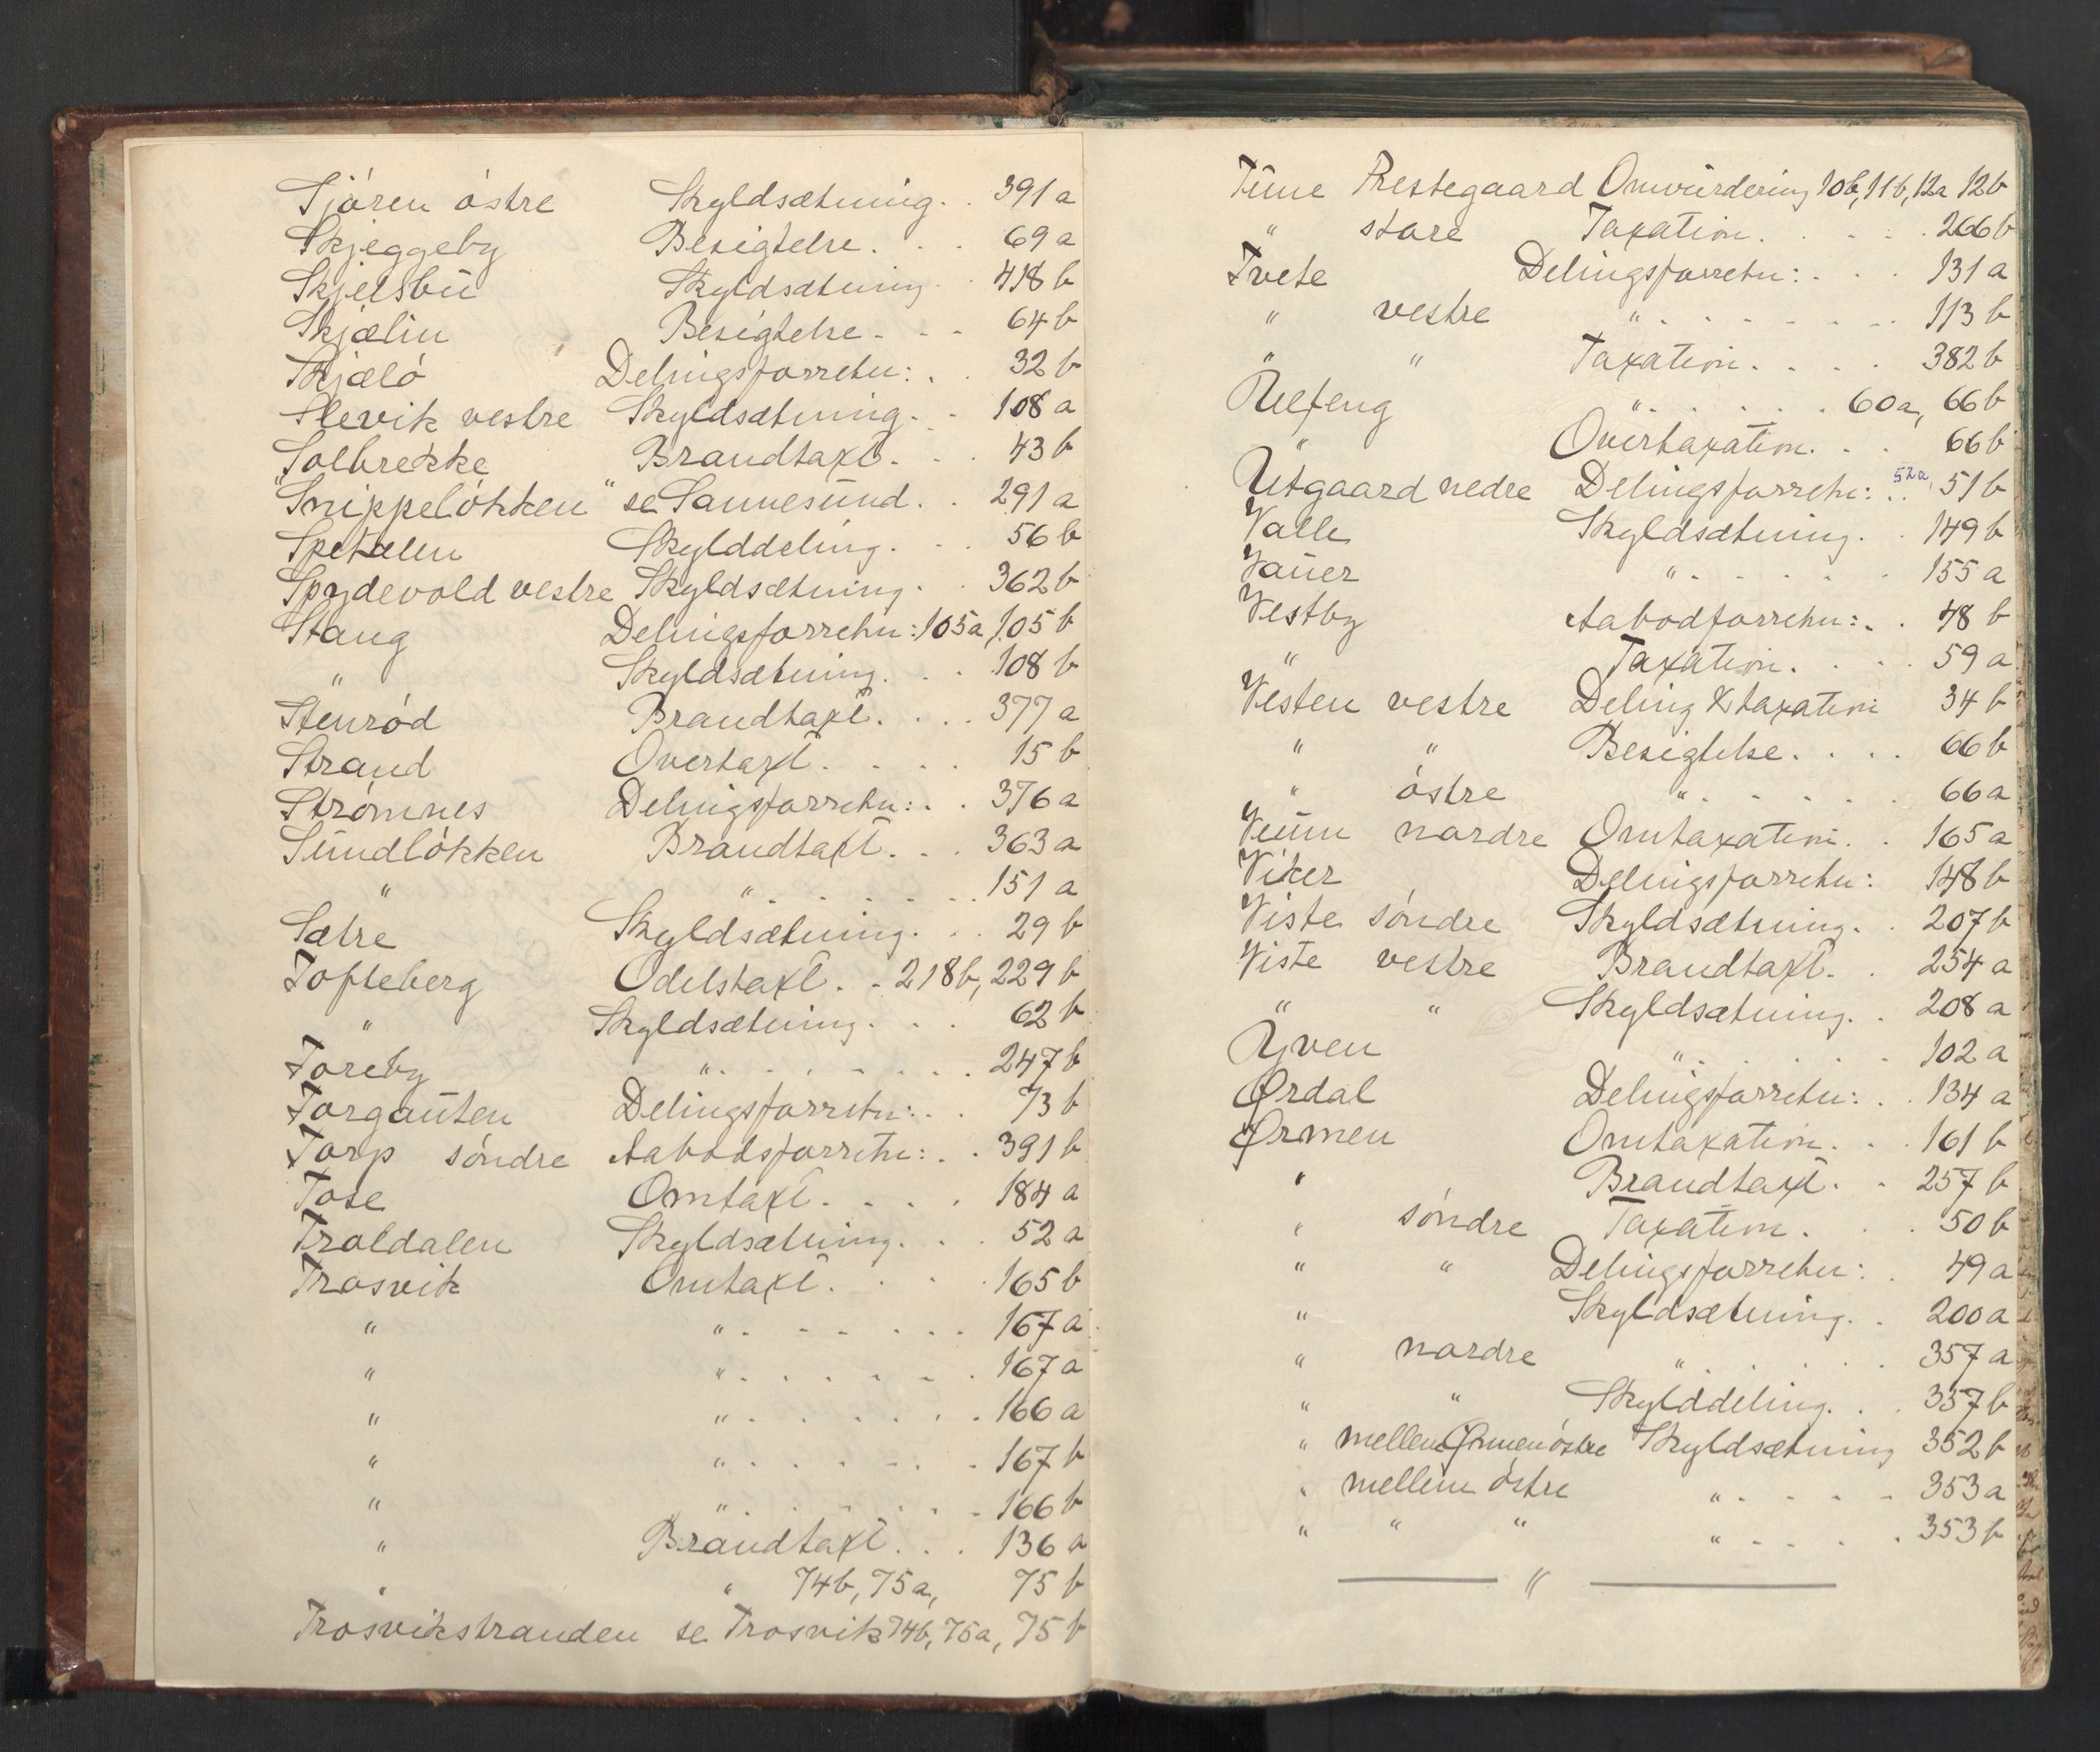 Sjören östre Skyldsætning. . 391 a
Skjeggeby Besigtelse. . . 69 a
Skjelsbu Skyldsætning. . 418 b
Skjælin Besigtelse - - - 64 b
Skjælö Delingsforretn: . . 32 b
Slevik vestre Skyldsætning. . 108 a
Solbrekke Brandtaxt. . . 43 b
"Snippelökken" se Sannesund. . 291 a
Spetalen Skylddeling. . . 56 b
Spydevold vestre Skyldsætning. . 362 b
Stang Delingsforretn: 105a, 105 b
" Skyldsætning. . . 108 b
Stenröd Brandtaxt. . . . 377 a
Strand Overtaxt. . . . 15 b
Strömnes Delingsforretn: . . 376 a
Sundlökken Brandtaxt. . . 363 a
" " . . . . . . 151 a
Sætre Skyldsætning. . . 29 b
Tofteberg Odelstaxt. . 218b, 229 b
" Skyldsætning. . . 62 b
Toreby " . . . . . . . 247 b
Torgauten Delingsforretn: . . 73 b
Torp söndre Aabodsforretn: . . 391 b
Tose Omtaxt. . . . 184 a
Troldalen Skyldsætning. . . 52 a
Trosvik Omtaxt. . . . 165 b
" " . . . . . . 167 a
" " . . . . . . 167 a
" " . . . . . . 166 a
" " . . . . . . 167 b
" " . . . . . . 166 b
" Brandtaxt. . . 136 a
" " 74b, 75a, 75 b
Trosvikstranden se Trosvik 74b, 75a, 75 b
Tune Prestegaard Omvurdering 10b, 11b, 12a 12b
" store Taxation. . . . . 266 b
Tvete Delingsforretn: . . . 131 a
" vestre " . . . . . . . 113 b
" " Taxation. . . . 382 b
Ulfeng " . . . . . . 60a, 66 b
" Overtaxation. . . 66 b
Utgaard nedre Delingsforretn: . . 52a, 51 b
Valle Skyldsætning. . 149 b
Vauer " . . . . . 155 a
Vestby Aabodforretn: . . 48 b
" Taxation. . . . 59 a
Vesten vestre Deling & taxation 34 b
" " Besigtelse. . . . 66 b
" östre " . . . . . 66 a
Veum nordre Omtaxation. . 165 a
Viker Delingsforretn: 148 b
Viste söndre Skyldsætning. . 207 b
Viste vestre Brandtaxt. . 254 a
" " Skyldsætning. . 208 a
Yven " . . . . . 102 a
Ørdal Delingsforretn: . . 134 a
Ørmen Omtaxation. . . 161 b
" Brandtaxt. . 257 b
" söndre Taxation. . . 50 b
" " Delingsforretn: . 49 a
" Skyldsætning. . 200 a
" nordre " . . . . . 357 a
" " Skylddeling. . . 357 b
" mellem Ørmen östre Skyldsætning 352 b
" mellem östre " . . . . 353 a
" " " " . . . . 353 b
"